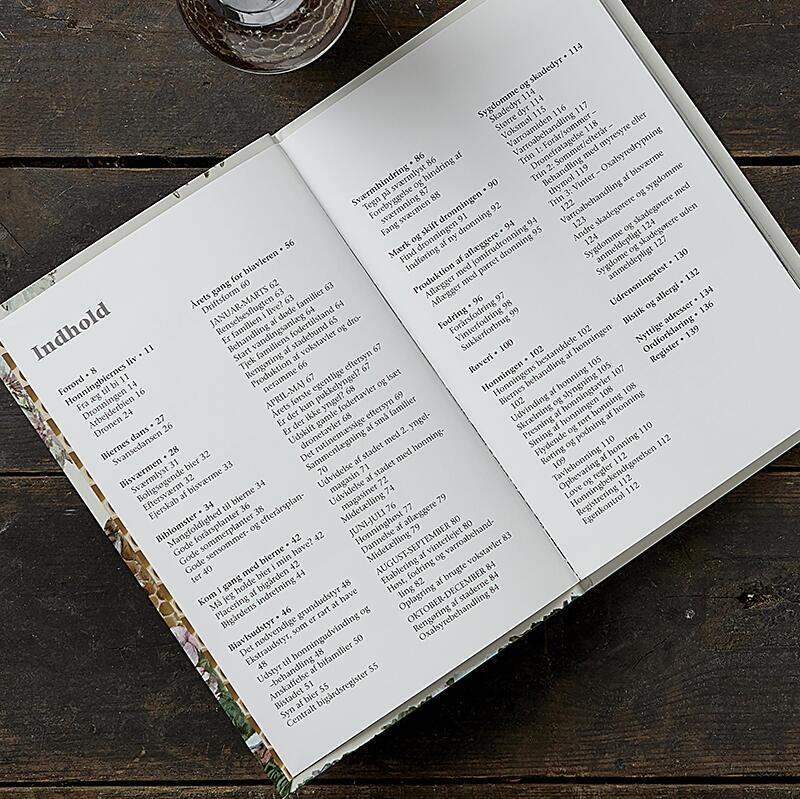 Indhold
Forord • 8
Honningbiernes liv • 11
Fra æg til bi 11
Dronningen 14
Arbejderbien 16
Dronen 24
Biernes dans • 27
Svansedansen 26
Bisværmen • 28
Sværmlyst 31
Boligsøgende bier 32
Eftersværm 32
Ejerskab af bisværme 33
Biblomster • 34
Mangfoldighed til bierne 34
Gode forårsplanter 36
Gode sommerplanter 38
Gode sensommer- og efterårsplan-
ter 40
Kom i gang med bierne • 42
Må jeg holde bier i min have? 42
Placering af bigården 42
Bigårdens indretning 44
Biavlsudstyr • 46
Det nødvendige grundudstyr 48
Ekstraudstyr, som er rart at have
48
Udstyr til honningudvinding og
–behandling 48
Anskaffelse af bifamilier 50
Bistadet 51
Syn af bier 55
Centralt bigårdsregister 55
Årets gang for biavleren • 56
Driftsform 60
JANUAR-MARTS 62
Renselsesflugten 63
Er familien i live? 63
Behandling af døde familier 63
Start vandingsanlæg 64
Tjek familiens foderilstand 64
Rengøring af stadebund 65
Produktion af vokstavler og dro-
neramme 66
APRIL-MAJ 67
Årets første egentlige eftersyn 67
Er der kun pukkelyngel? 67
Er der ikke yngel? 68
Udskift gamle fodertavler og isæt
dronetavler 68
Det rutinemæssige eftersyn 69
Sammenlægning af små familier
70
Udvidelse af stadet med 2. yngel-
magasin 71
Udvidelse af stadet med honning-
magasiner 72
Midletælling 74
JUNI-JULI 76
Honninghøst 77
Dannelse af aflæggere 79
Midetælling 79
AUGUST-SEPTEMBER 80
Etablering af vinterfejet 80
Høst, fodring og varroabehand-
ling 82
Oplagring af brugte vokstavler 83
OKTOBER-DECEMBER 84
Rengøring af staderne 84
Oxalsyrebehandling 84
Sværmhindring • 86
Tegn på sværmlyst 86
Forebyggelse og hindring af
sværmning 87
Fang sværmen 88
Mærk og skift dronningen • 90
Find dronningen 91
Indføring af ny dronning 92
Produktion af aflæggere • 94
Aflægger med jomfrudronning 94
Aflægger med parret dronning 95
Fodring • 96
Forårsfodring 97
Vinterfodring 98
Sukkerionbrug 99
Raveri • 100
Honningen • 102
Honningens bestanddele 102
Biernes behandling af honningen
102
Udvinding af honning 105
Skrælning og slyngning 105
Presning af honningtavler 107
Sining af honningen 108
Flydende og rørt honning 108
Røring og podning af honning
109
Tavlehonning 110
Opbevaring af honning 110
Love og regler 112
Honningbekendtgørelsen 112
Registrering 112
Egenkontrol 112
Sygdomme og skadedyr • 114
Skadedyr 114
Større dyr 114
Voksmøl 115
Varroamidn 116
Varroabehandling 117
Trin 1: Forår/sommer –
Dronefrasøgning 118
Trin 2: Sommer/efterår –
Behandling med myresyre eller
thymol 119
Trin 3: Vinter – Oxalsyredrypning
122
Varroabehandling af bisværme
123
Andre skadegørere og sygdomme
124
Sygdomme og skadegørere med
anmeldepligt 124
Sygdomme og skadegørere uden
anmeldepligt 127
Udrensningstest • 130
Bistik og allergi • 132
Nyttige adresser • 134
Ordforklaring • 136
Register • 139